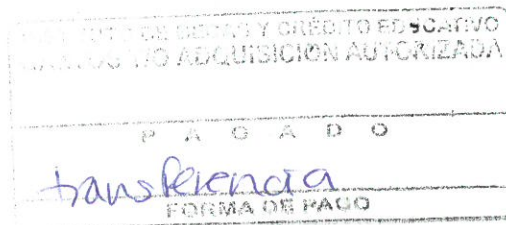 INSTITUTO DE BECAS Y CRÉDITO EDUCATIVO
Y/O ADQUISICIÓN AUTORIZADA
PAGADO
transferencia
FORMA DE PAGO